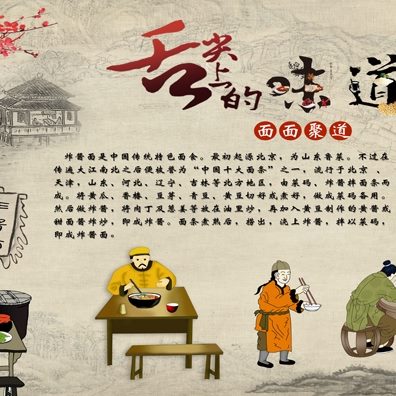 舌尖上的味道
面面聚道
炸酱面是中国传统特色面食。最初起源北京，为山东鲁菜。不过在
传遍大江南北之后便被誉为“中国十大面条”之一，流行于北京、
天津，山东、河北、辽宁、吉林等北方地区，由菜码、炸酱拌面条而
成。将黄瓜、香椿、豆芽、青豆、黄豆切好或煮好，做成菜码备用。
然后做炸酱，将肉丁及葱姜等放在油里炒，再加入黄豆制作的黄酱或
甜面酱炸炒，即成炸酱。面条煮熟后，捞出，浇上炸酱，拌以菜码，
即成炸酱面。